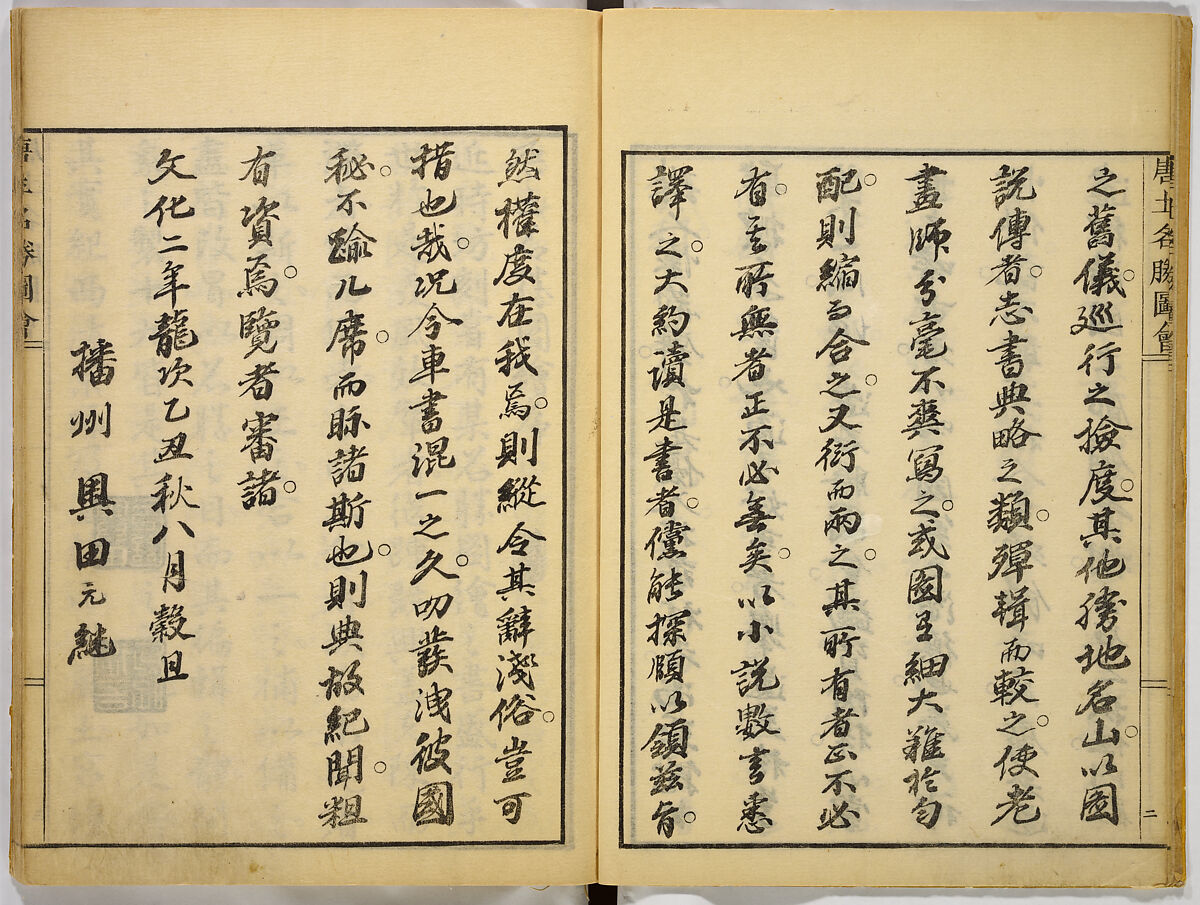 唐土名勝圖會
二
之舊儀。巡行之撿度。其他勝地名山。以圖
說傳者。志書典略之類。殫輯而較之。使老
畫師分毫不爽寫之。或圖至細大難於勻
配。則縮而合之。又衍而兩之。其所有者正不必
有。其所無者正不必無矣。以小說數言悉
譯之。大約讀是書者。儻能探頤以領玆旨。
然權度在我焉。則縱令其辭淺俗。豈可
措也哉。況今車書混一之久。叨蒙洩彼國
秘。不踰几席。而眎諸斯也。則典故紀聞。粗
有資焉。覽者審諸。
文化二年龍次乙丑秋八月穀旦
播州 奧田元継
唐土名勝圖會